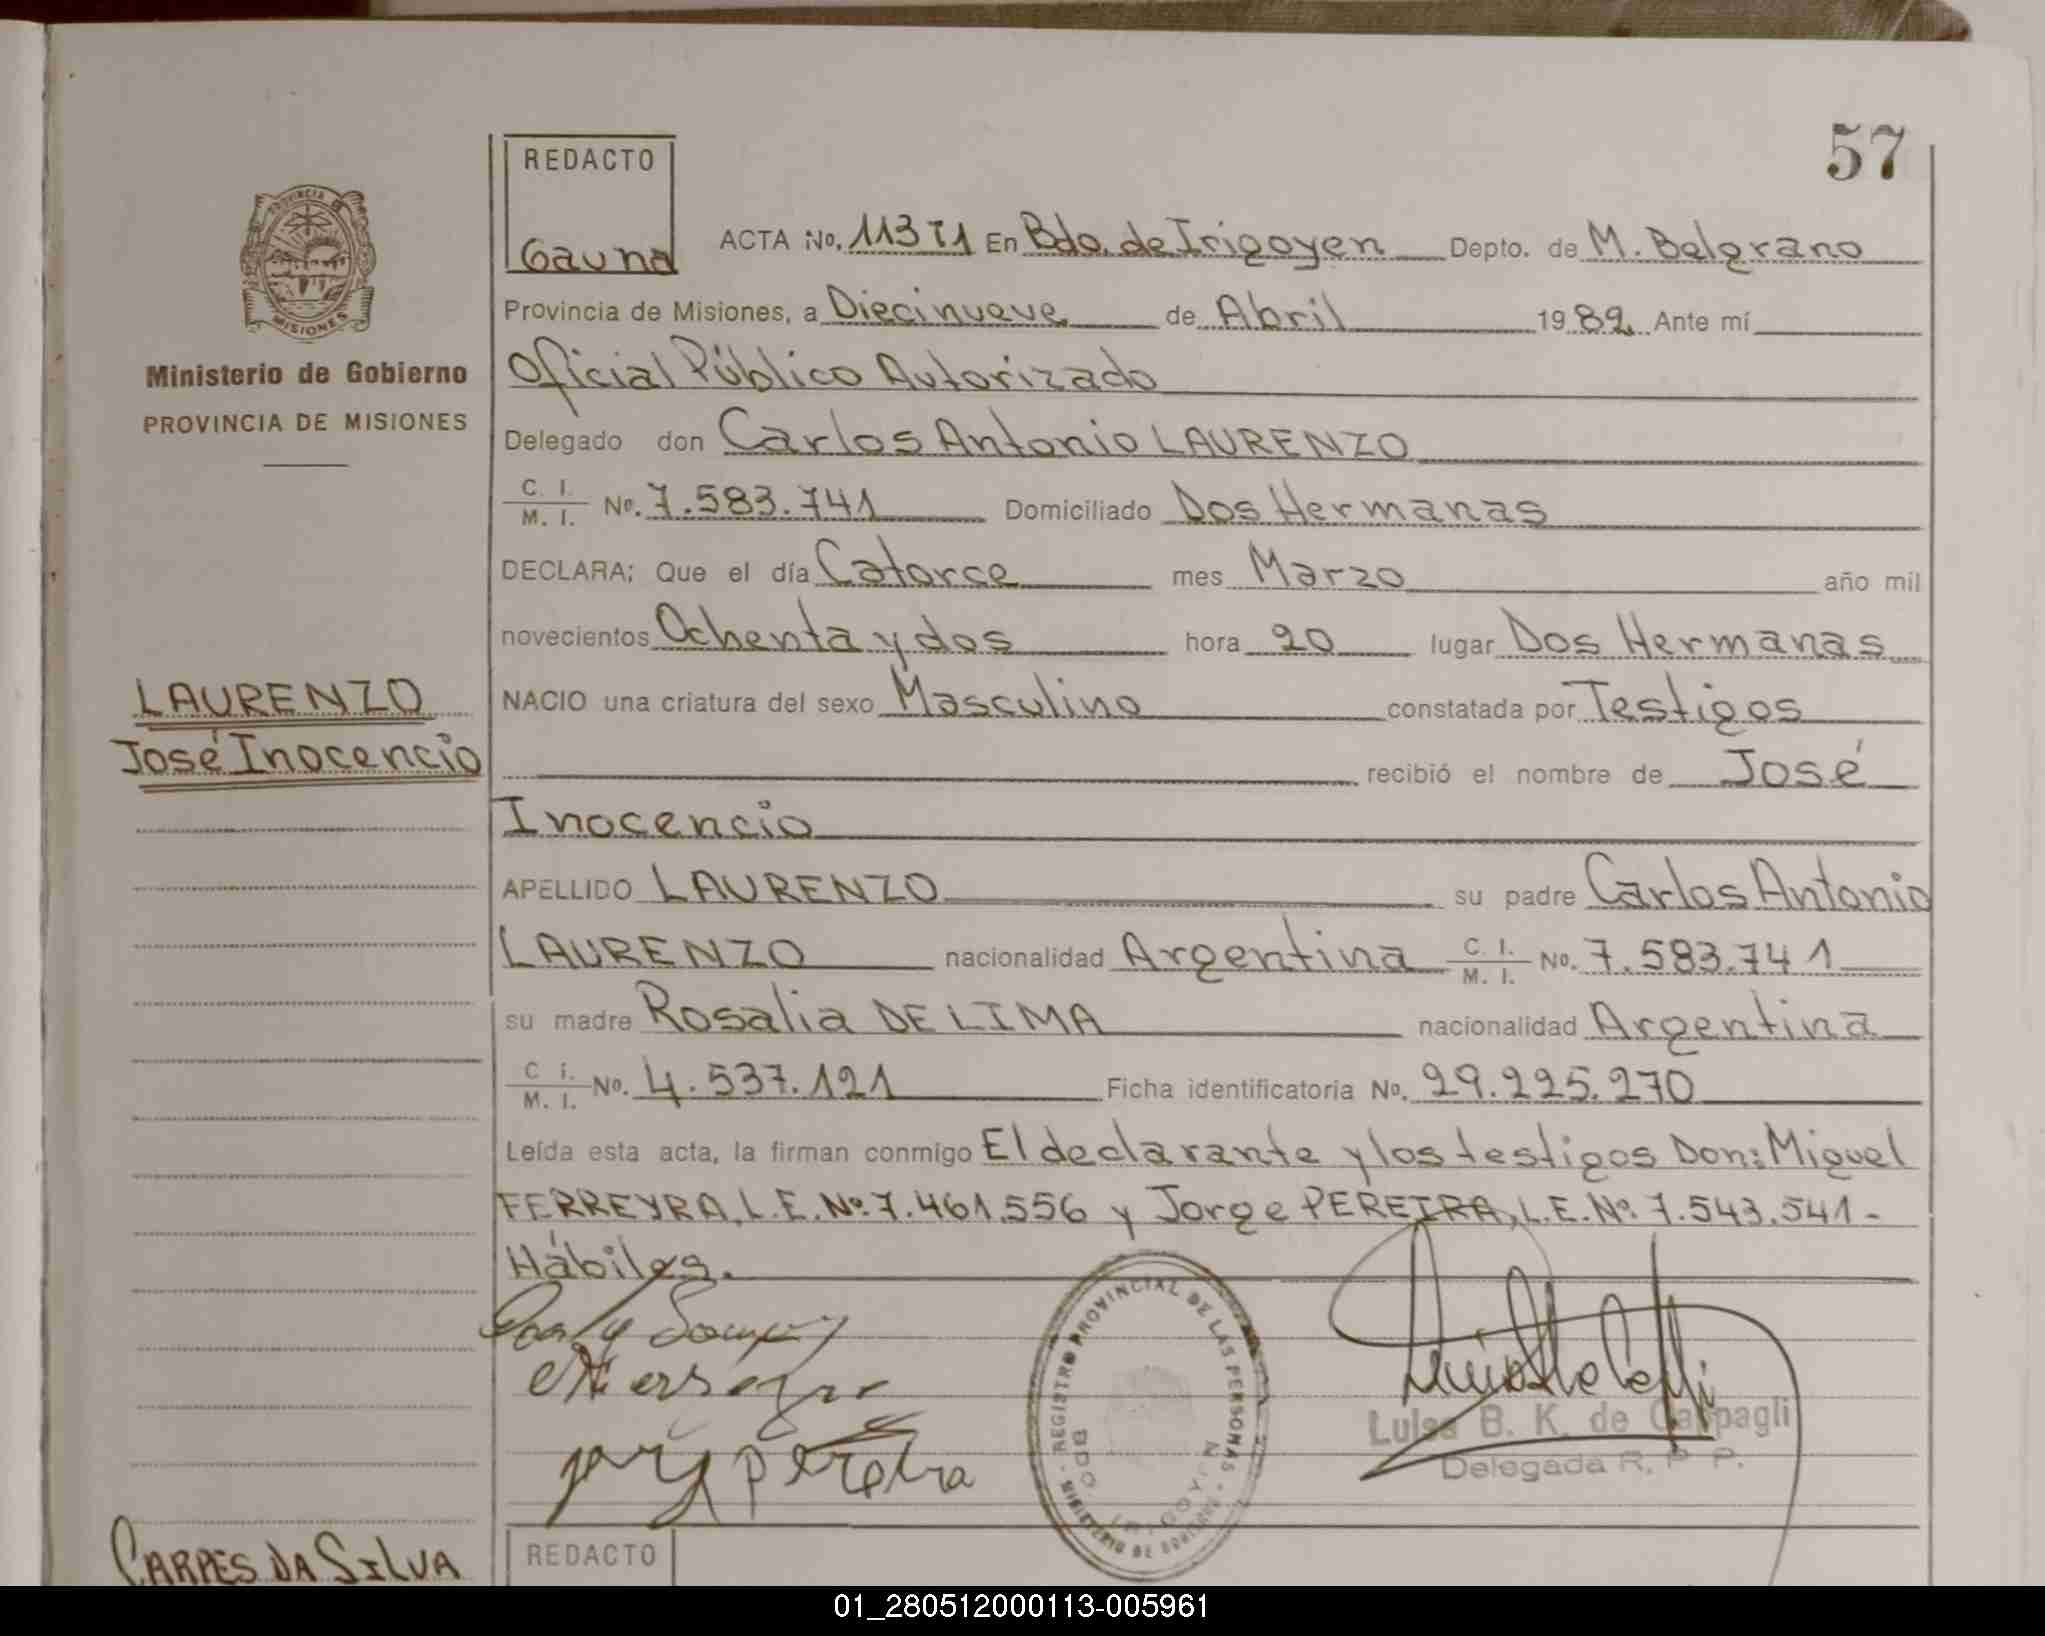 57
REDACTO
Gauna
ACTA No. 113 T1 En Bdo. de Irigoyen Depto. de M. Belgrano
Provincia de Misiones, a Diecinueve de Abril 1982 Ante mí
Oficial Público Autorizado
Delegado don Carlos Antonio LAURENZO
C. I. / M. I. No. 7.583.741 Domiciliado Dos Hermanas
DECLARA; Que el día Catorce mes Marzo año mil
novecientos Ochenta y dos hora 20 lugar Dos Hermanas
NACIO una criatura del sexo Masculino constatada por Testigos
recibió el nombre de José
Inocencio
APELLIDO LAURENZO su padre Carlos Antonio
LAURENZO nacionalidad Argentina C. I. / M. I. No. 7.583.741
su madre Rosalia DE LIMA nacionalidad Argentina
C I. / M. I. No. 4.537.121 Ficha identificatoria No. 29.225.270
Leída esta acta, la firman conmigo El declarante y los testigos Don: Miguel
FERREYRA, L.E. Nº. 7.461.556 y Jorge PEREIRA, L.E. Nº. 7.543.541-
Hábiles.
PROVINCIA DE
MISIONES
Ministerio de Gobierno
PROVINCIA DE MISIONES
LAURENZO
José Inocencio
REGISTRO PROVINCIAL DE LAS PERSONAS
MINISTERIO DE GOBIERNO
BDO. IRIGOYEN
pereira
Luisa B. K. de Campagli
Delegada R. P. P.
CARPES DA SILVA
REDACTO
01_280512000113-005961